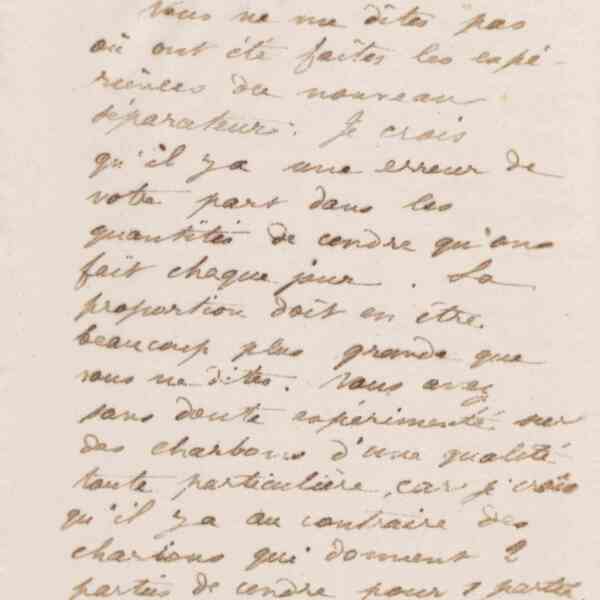 Vous ne me dites pas
où ont été faites les expé-
riences du nouveau
séparateur. Je crois
qu'il y a une erreur de
votre part dans les
quantités de cendre qu'on
fait chaque jour. La
proportion doit en être
beaucoup plus grande que
vous ne dites. Vous avez
sans doute expérimenté sur
des charbons d'une qualité
toute particulière, car je crois
qu'il y a au contraire des
charbons qui donnent 2
parties de cendre pour 1 partie